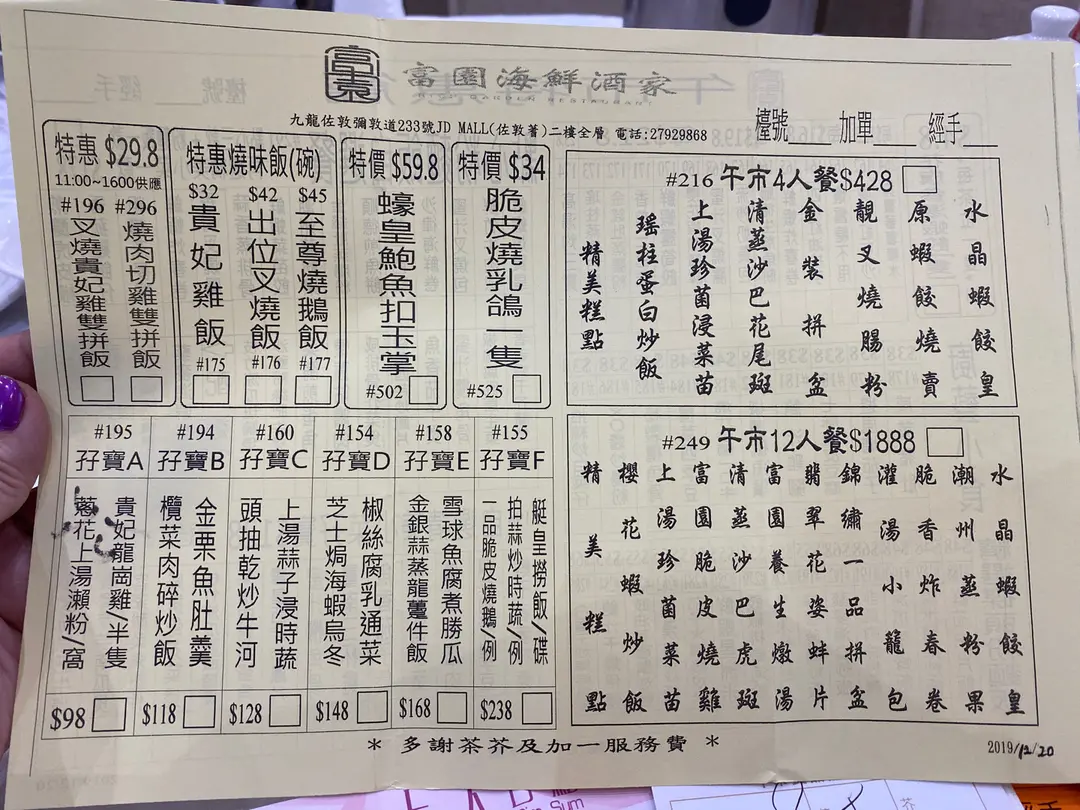 富園
富園海鮮酒家
九龍佐敦彌敦道233號JD MALL(佐敦薈)二樓全層 電話:27929868
檯號 加單 經手
特惠 $29.8
11:00~1600供應
#196
叉燒貴妃雞雙拼飯
#296
燒肉切雞雙拼飯
特惠燒味飯(碗)
$32
貴妃雞飯
#175
$42
出位叉燒飯
#176
$45
至尊燒鵝飯
#177
特價 $59.8
蠔皇鮑魚扣玉掌
#502
特價 $34
脆皮燒乳鴿一隻
#525
#216 午市4人餐$428
水晶蝦餃皇
原蝦餃燒賣
靚叉燒腸粉
金裝拼盆
清蒸沙巴花尾斑
上湯珍菌浸菜苗
瑤柱蛋白炒飯
精美糕點
#195
孖寶A
貴妃龍崗雞/半隻
花上湯瀨粉/窩
$98
#194
孖寶B
金栗魚肚羹
欖菜肉碎炒飯
$118
#160
孖寶C
上湯蒜子浸時蔬
頭抽乾炒牛河
$128
#154
孖寶D
椒絲腐乳通菜
芝士焗海蝦烏冬
$148
#158
孖寶E
雪球魚腐煮勝瓜
金銀蒜蒸龍躉件飯
$168
#155
孖寶F
艇皇撈飯/碟
拍蒜炒時蔬/例
一品脆皮燒鵝/例
$238
#249 午市12人餐$1888
水晶蝦餃皇
潮州蒸粉果
脆香炸春卷
灌湯小籠包
錦繡一品拼盆
翡翠花姿蚌片
富園養生燉湯
清蒸沙巴虎斑
富園脆皮燒雞
上湯珍菌菜苗
櫻花蝦炒飯
精美糕點
* 多謝茶芥及加一服務費 *
2019/12/20